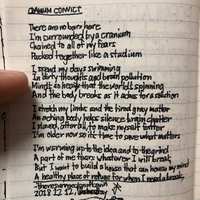 CRANIUM CONVICT
There are no bars here
I'm surrounded by a cranium
Chained to all of my fears
Packed together like a stadium
I spend my days swimming
In dirty thoughts and brain pollution
Mind's so heavy that the world's spinning
And the bed breaks as it aches for a solution
I stretch my limbs and the tired grey matter
An aching body helps silence brain chatter
I moved, after all, to make myself better
I'm older now so it's time to save what matters
I'm warming up to the idea and to the grind
A part of me fears whatever I will break
But I want to build a house that can house my mind
A healthy place of refuge for when I need a break
2018.12.12.